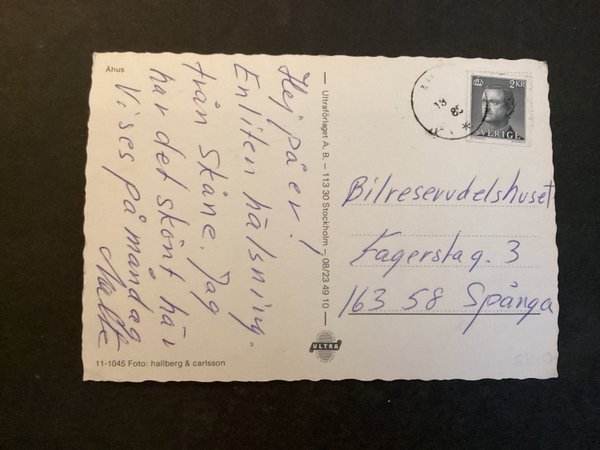 Åhus
Hej på er!
En liten hälsning
från Skåne. Jag
har det skönt här
Vi ses på måndag
Malte
Ultraförlaget A. B. – 113 30 Stockholm – 08/23 49 10
ULTRA
11-1045 Foto: hallberg & carlsson
2 KR
SVERIGE
Bilreservdelshuset
Fagerstag. 3
163 58 Spånga